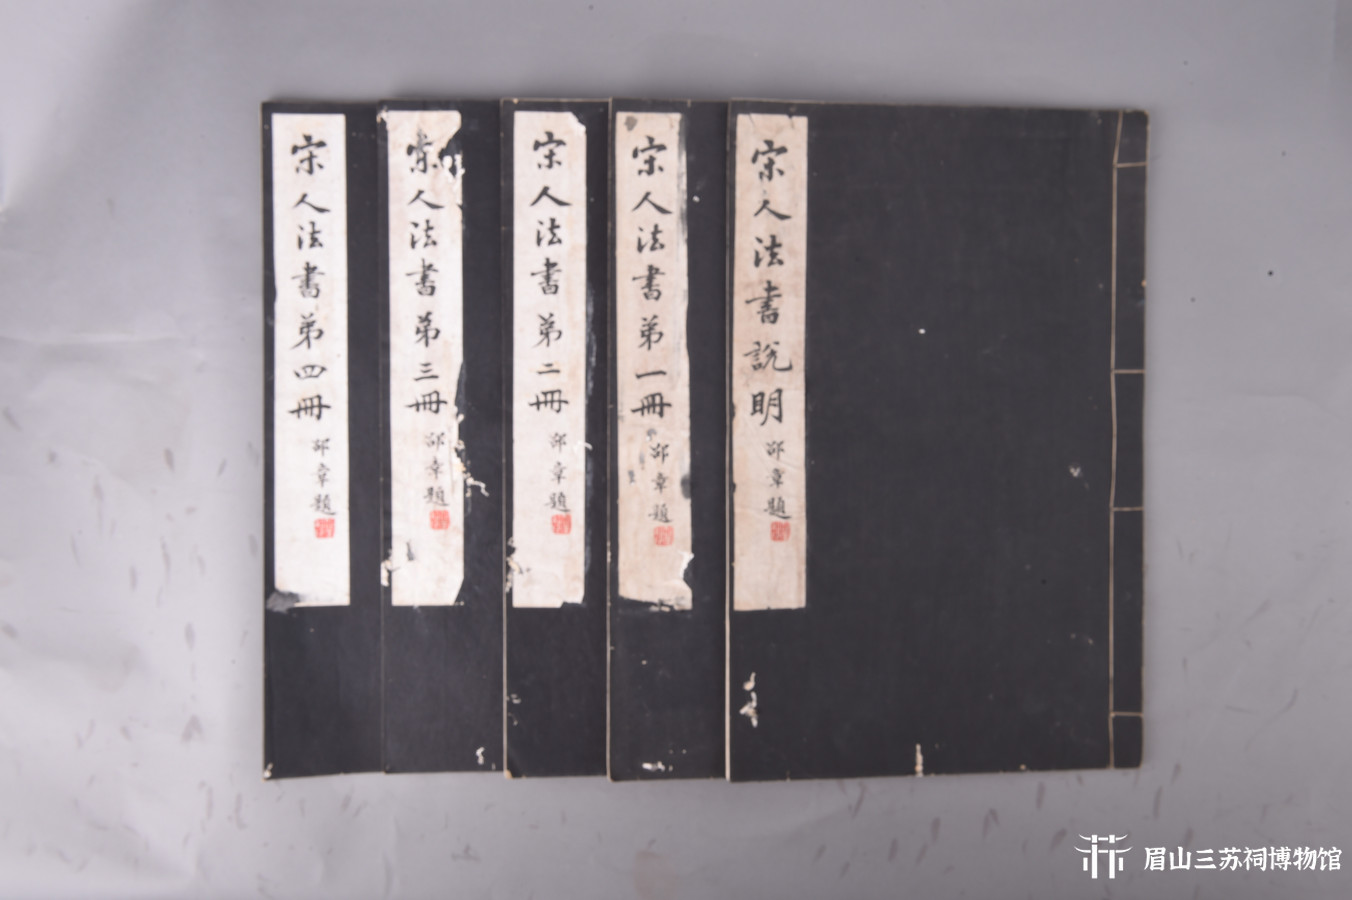 宋人法書說明
邵章題
宋人法書第一冊
邵章題
宋人法書第二冊
邵章題
宋人法書第三冊
邵章題
宋人法書第四冊
邵章題
眉山三苏祠博物馆